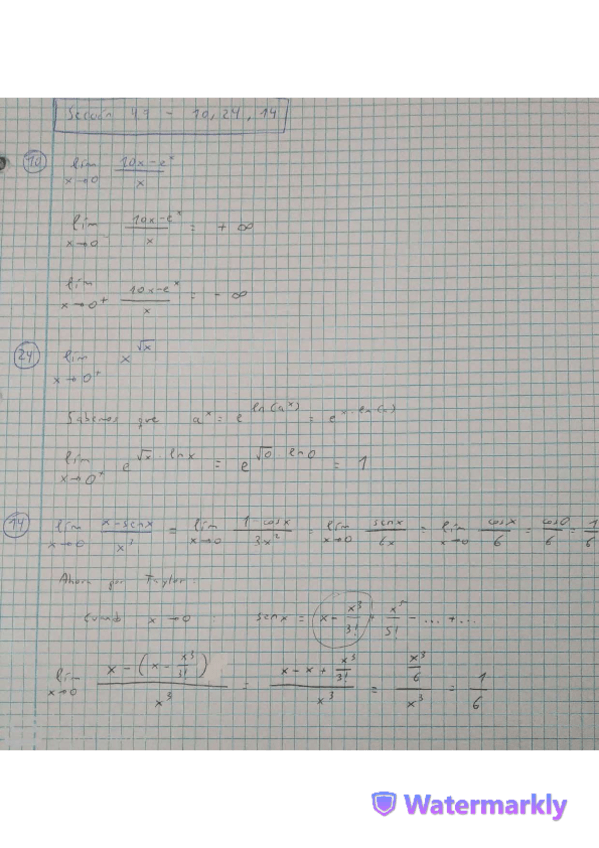 Sección 4.7 - 10, 24, 14
10 lim x→0 (10x-e^x)/x
lim x→0⁻ (10x-e^x)/x = + ∞
lim x→0⁺ (10x-e^x)/x = - ∞
24 lim x→0⁺ x^√x
Sabemos que a^x = e^ln(a^x) = e^x·ln(a)
lim x→0⁺ e^√x · lnx = e^√0 · ln0 = 1
14 lim x→0 (x-senx)/x³ = lim x→0 (1-cosx)/3x² = lim x→0 senx/6x = lim x→0 cosx/6 = cos0/6 = 1/6
Ahora por Taylor:
Cuando x→0 : senx = x - x³/3! + x⁵/5! - ... + ...
lim x→0 (x-(x-x³/3!))/x³ = (x-x+x³/3!)/x³ = (x³/6)/x³ = 1/6
Watermarkly